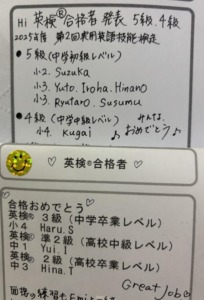 Hi 英検® 合格者 発表 5級、4級
2025年度 第2回実用英語技能検定
● 5級 (中学初級レベル)
小2. Suzuka
小3. Yuto. Iroha. Hinano
小3. Ryutaro. Susumu
● 4級 (中学中級レベル)
小4. Kugai
みんな
おめでとう♪
♡ 英検®合格者 ♡
合格おめでとう
英検® 3級 (中学卒業レベル)
小4 Haru.S
英検® 準2級 (高校中級レベル)
中1 Yui.I
英検® 2級 (高校卒業レベル)
中3 Hina.I
Great Job